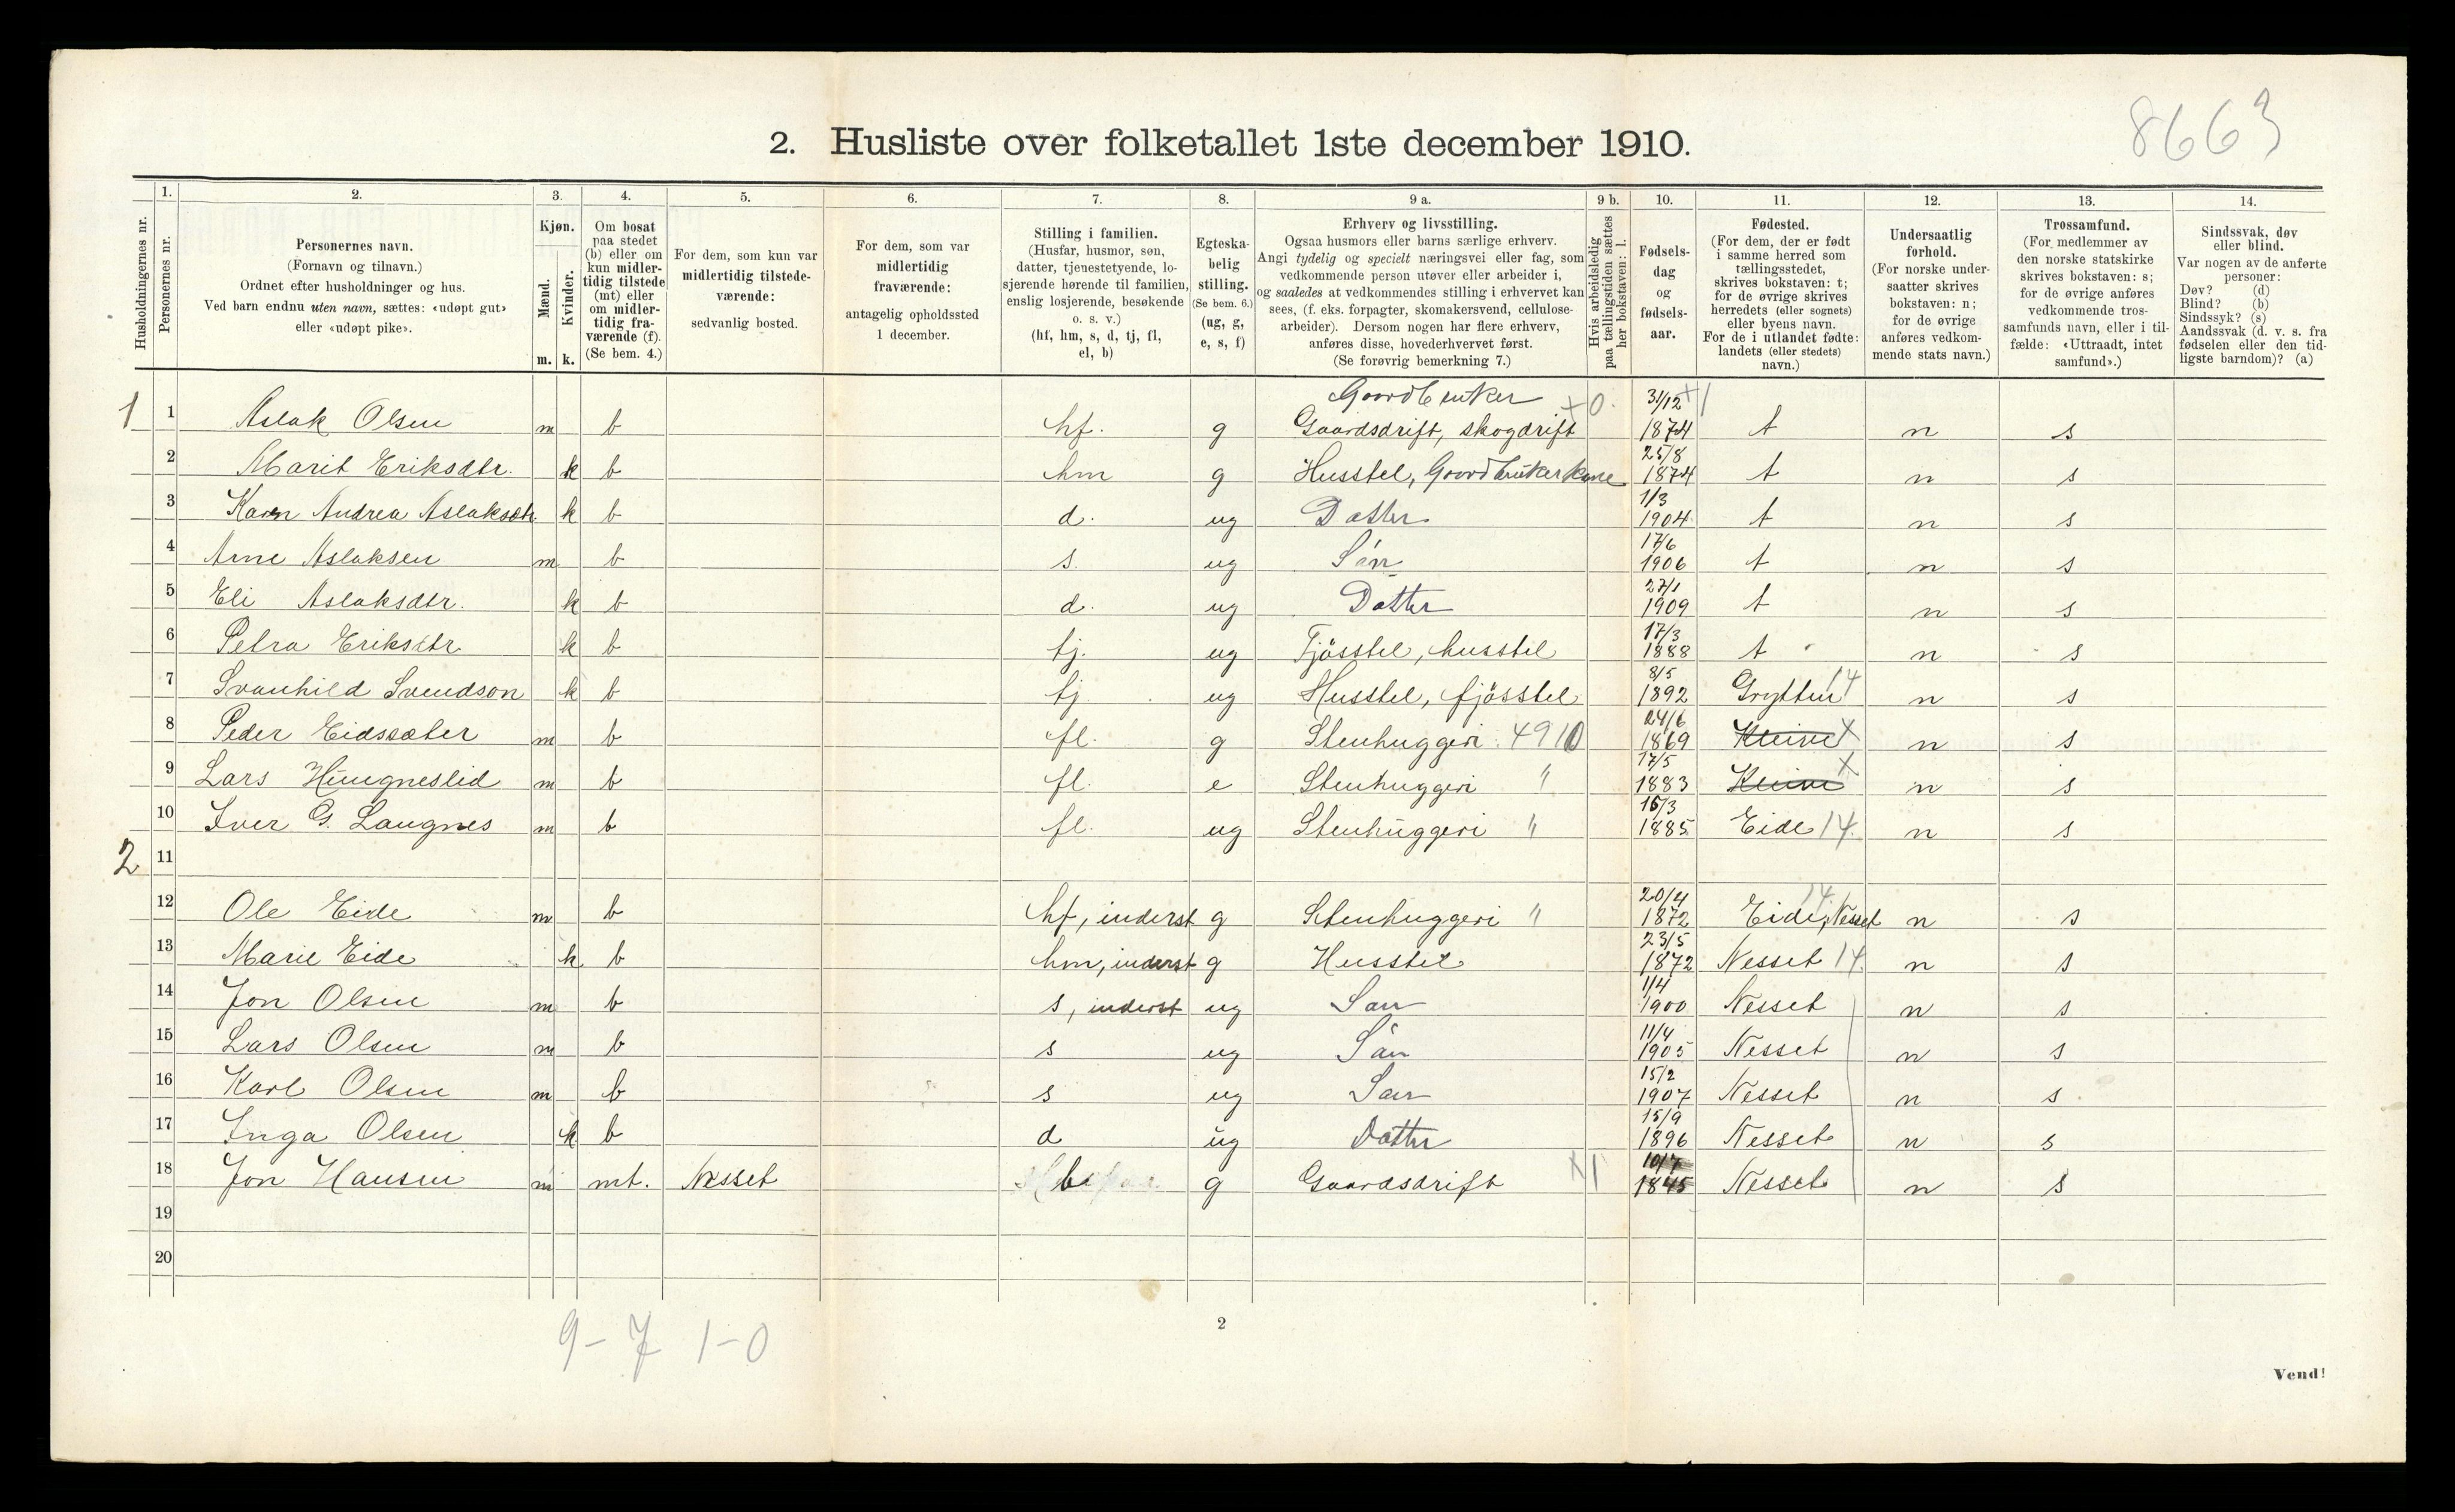 8663
2. Husliste over folketallet 1ste december 1910.
1. 2. 3. 4. 5. 6. 7. 8. 9 a. 9 b. 10. 11. 12. 13. 14.
Husholdningernes nr.
Personernes nr.
Personernes navn.
(Fornavn og tilnavn.)
Ordnet efter husholdninger og hus.
Ved barn endnu uten navn, sættes: «udøpt gut»
eller «udøpt pike».
Kjøn.
Mænd.
Kvinder.
m. k.
Om bosat
paa stedet
(b) eller om
kun midler-
tidig tilstede
(mt) eller
om midler-
tidig fra-
værende (f).
(Se bem. 4.)
For dem, som kun var
midlertidig tilstede-
værende:
sedvanlig bosted.
For dem, som var
midlertidig
fraværende:
antagelig opholdssted
1 december.
Stilling i familien.
(Husfar, husmor, søn,
datter, tjenestetyende, lo-
sjerende hørende til familien,
enslig losjerende, besøkende
o. s. v.)
(hf, hm, s, d, tj, fl,
el, b)
Egteska-
belig
stilling.
(Se bem. 6.)
(ug, g,
e, s, f)
Erhverv og livsstilling.
Ogsaa husmors eller barns særlige erhverv.
Angi tydelig og specielt næringsvei eller fag, som
vedkommende person utøver eller arbeider i,
og saaledes at vedkommendes stilling i erhvervet kan
sees, (f. eks. forpagter, skomakersvend, cellulose-
arbeider). Dersom nogen har flere erhverv,
anføres disse, hovederhvervet først.
(Se forøvrig bemerkning 7.)
Hvis arbeidsledig
paa tællingstiden sættes
her bokstaven: l.
Fødsels-
dag
og
fødsels-
aar.
Fødested.
(For dem, der er født
i samme herred som
tællingsstedet,
skrives bokstaven: t;
for de øvrige skrives
herredets (eller sognets)
eller byens navn.
For de i utlandet fødte:
landets (eller stedets)
navn.)
Undersaatlig
forhold.
(For norske under-
saatter skrives
bokstaven: n;
for de øvrige
anføres vedkom-
mende stats navn.)
Trossamfund.
(For medlemmer av
den norske statskirke
skrives bokstaven: s;
for de øvrige anføres
vedkommende tros-
samfunds navn, eller i til-
fælde: «Uttraadt, intet
samfund».)
Sindssvak, døv
eller blind.
Var nogen av de anførte
personer:
Døv? (d)
Blind? (b)
Sindssyk? (s)
Aandssvak (d. v. s. fra
fødselen eller den tid-
ligste barndom)? (a)
Gaardbruker x0. 31/12 x1
1 1 Aslak Olsen m b hf. g Gaardsdrift, skogdrift 1874 t n s
2 Marit Eriksdtr. k b hm g Husstel, Gaardbrukerkone 25/8 1874 t n s
3 Karen Andrea Aslaksdtr. k b d. ug Datter 1/3 1904 t n s
4 Arne Aslaksen m b s. ug Sön 17/6 1906 t n s
5 Eli Aslaksdtr. k b d. ug Datter 27/1 1909 t n s
6 Petra Eriksdtr k b tj. ug Fjösstel, husstel 17/3 1888 t n s
7 Svanhild Svendson k b tj ug Husstel, fjösstel 8/5 1892 Grytten 14 n s
8 Peder Eidssæter m b fl. g Stenhuggeri 4910 24/6 1869 Kleive x n s
9 Lars Hungneslid m b fl. e Stenhuggeri " 17/5 1883 Kleive x n s
10 Iver G. Langnes m b fl. ug Stenhuggeri " 15/3 1885 Eide 14. n s
2 11
12 Ole Eide m b hf, inderst g Stenhuggeri " 20/4 1872 Eide, Nesset 14 n s
13 Marie Eide k b hm, inderst g Husstel 23/5 1872 Nesset 14. n s
14 Jon Olsen m b s, inderst ug Sön 1/4 1900 Nesset n s
15 Lars Olsen m b s ug Sön 11/4 1905 Nesset n s
16 Karl Olsen m b s ug Sön 15/2 1907 Nesset n s
17 Inga Olsen k b d ug Datter 15/9 1896 Nesset n s
18 Jon Hansen m mt. Nesset b g Gaardsdrift x1 10/7 1845 Nesset n s
19
20
9-7 1-0
2
Vend!